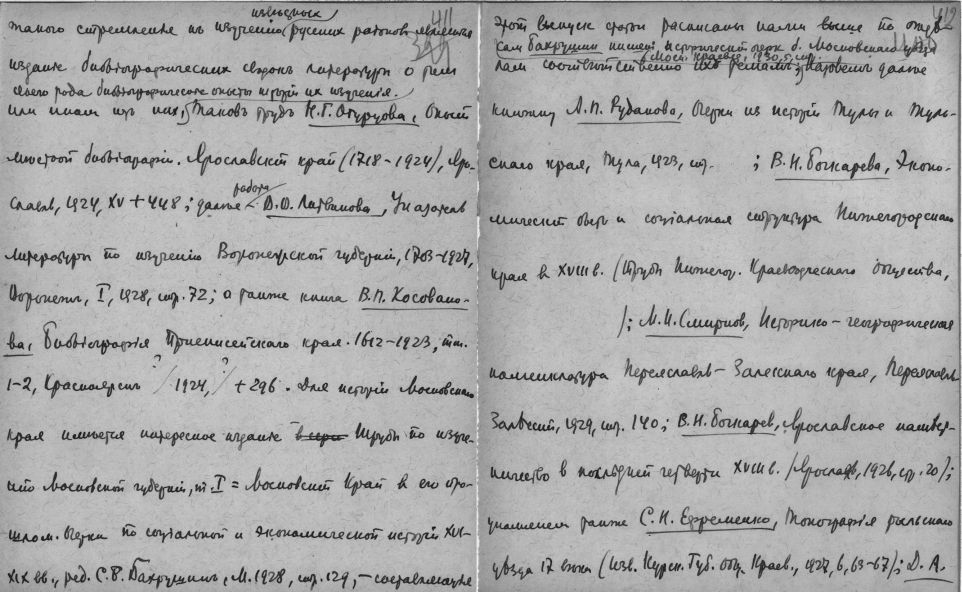 известных
такого стремления къ изучению русских районов является
издание библиографических сводок литературы о
своего рода библиографические опыты изучения.
или иным из них, таков трудъ Н.Г. Огурцова, Опыт
местной библиографии. Ярославский край (1718-1924), Яро-
славль, 1924, XV + 448; далее работа О.О. Литвинова, Указатель
литературы по изучению Воронежской губернии, 1703-1927,
Воронеж, I, 1928, стр. 72; а также книга В.П. Косовано-
ва, Библиография Приенисейского края. 1612-1923, тт.
1-2, Красноярск / 1924, / + 296. Для истории Московского
края имеется интересное издание Труды по изуче-
нию Московской губернии, т. I = Московский Край в его про-
шлом. Очерки по социальной и экономической истории XVI-
XIX вв., ред. С.В. Бахрушина, М. 1928, стр. 129, – составляющие
411
412
Этот выпуск статьи расписаны нами выше по
сам Бахрушин пишет исторический очерк б. Московского
в Моск. краевед, 1930, 5, стр.
соответственно их ; назовем далее
книжку А.П. Рудакова, Очерки из истории Тулы и Туль-
ского края, Тула, 1923, стр. ; В.Н. Бочкарева, Эконо-
мический быт и социальная структура Нижегородского
края в XVIII в. (Труды Нижегор. Краеведческого общества,
/; М.И. Смирнов, Историко-географическая
номенклатура Переяславль-Залесского края, Переяславль
Залесский, 1929, стр. 140; В.Н. Бочкарев, Ярославское намест-
ничество в последней четверти XVIII в. /Ярославль, 1926, стр. 20/;
упомянем также С.И. Ефременко, Монография рыльского
уезда 17 века (Изв. Курск. Губ. Общ. Краев., 1927, 6, 63-67); Д.А.